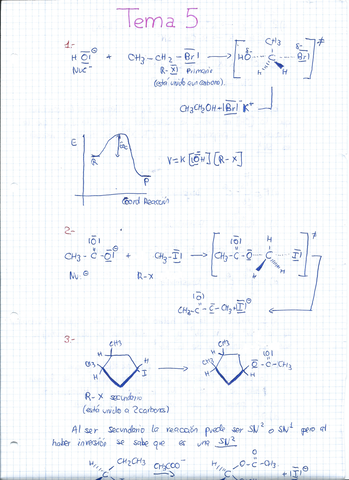 Tema 5
1.-
H O ⊖ + CH₃ – CH₂ – Br → [HO δ- ··· C ··· Br δ-]≠
CH₃
H H
Nuc⊖ R-X Primario
(está unido a un carbono)
CH₃CH₂OH + Br⁻ K⁺
E
R P
Coord Reacción
V = K [OH] [R-X]
2.-
CH₃ – C – O ⊖ + CH₃ – I → [CH₃ – C – O ··· C ··· I]≠
O O H
H H
Nu⊖ R-X
CH₃ – C – – CH₃ + I⊖
O
3.-
CH₃ CH₃
CH₃ H I → CH₃ H O – C – CH₃
H H H O
R-X secundario
(está unido a 2 carbonos)
Al ser secundario la reacción puede ser SN² o SN¹ pero al
haber inversión se sabe que es una SN²
CH₂CH₃ CH₃COO⁻ O-C-CH₃
H – C → H – C + I⊖